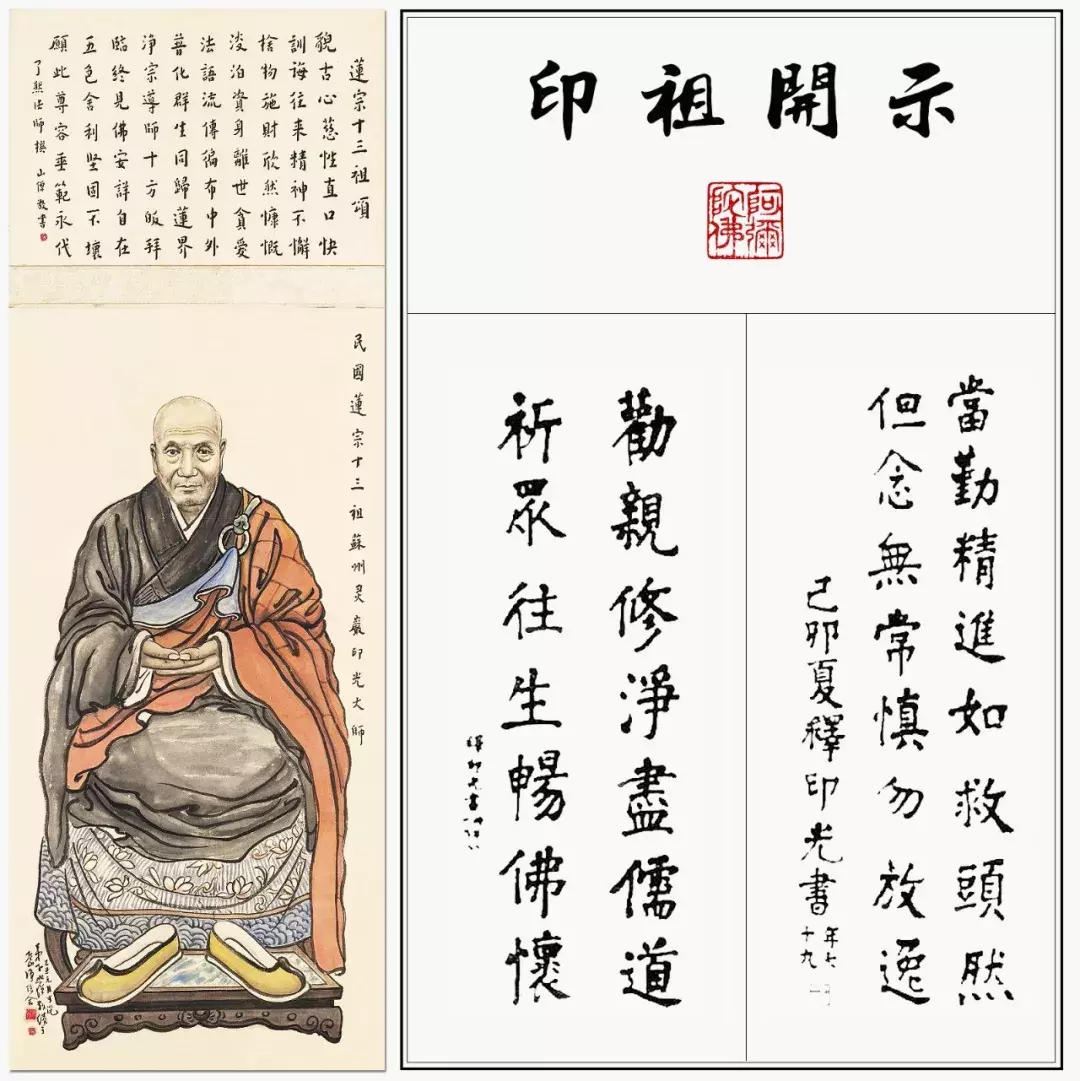 蓮宗十三祖頌
貌古心慈性直口快
訓誨往来精神不懈
捨物施財欣然慷慨
淡泊資身離世貪愛
法語流傳徧布中外
普化群生同歸蓮界
净宗導師十方皈拜
臨終見佛安詳自在
五色舍利堅固不壞
願此尊容垂範永代
了然法師撰 山僧敬書
民國蓮宗十三祖蘇州灵巖印光大師
印祖開示
阿彌陀佛
當勤精進如救頭然
但念無常慎勿放逸
己卯夏釋印光書
年七十九
勸親修淨盡儒道
祈眾往生暢佛懷
釋印光書